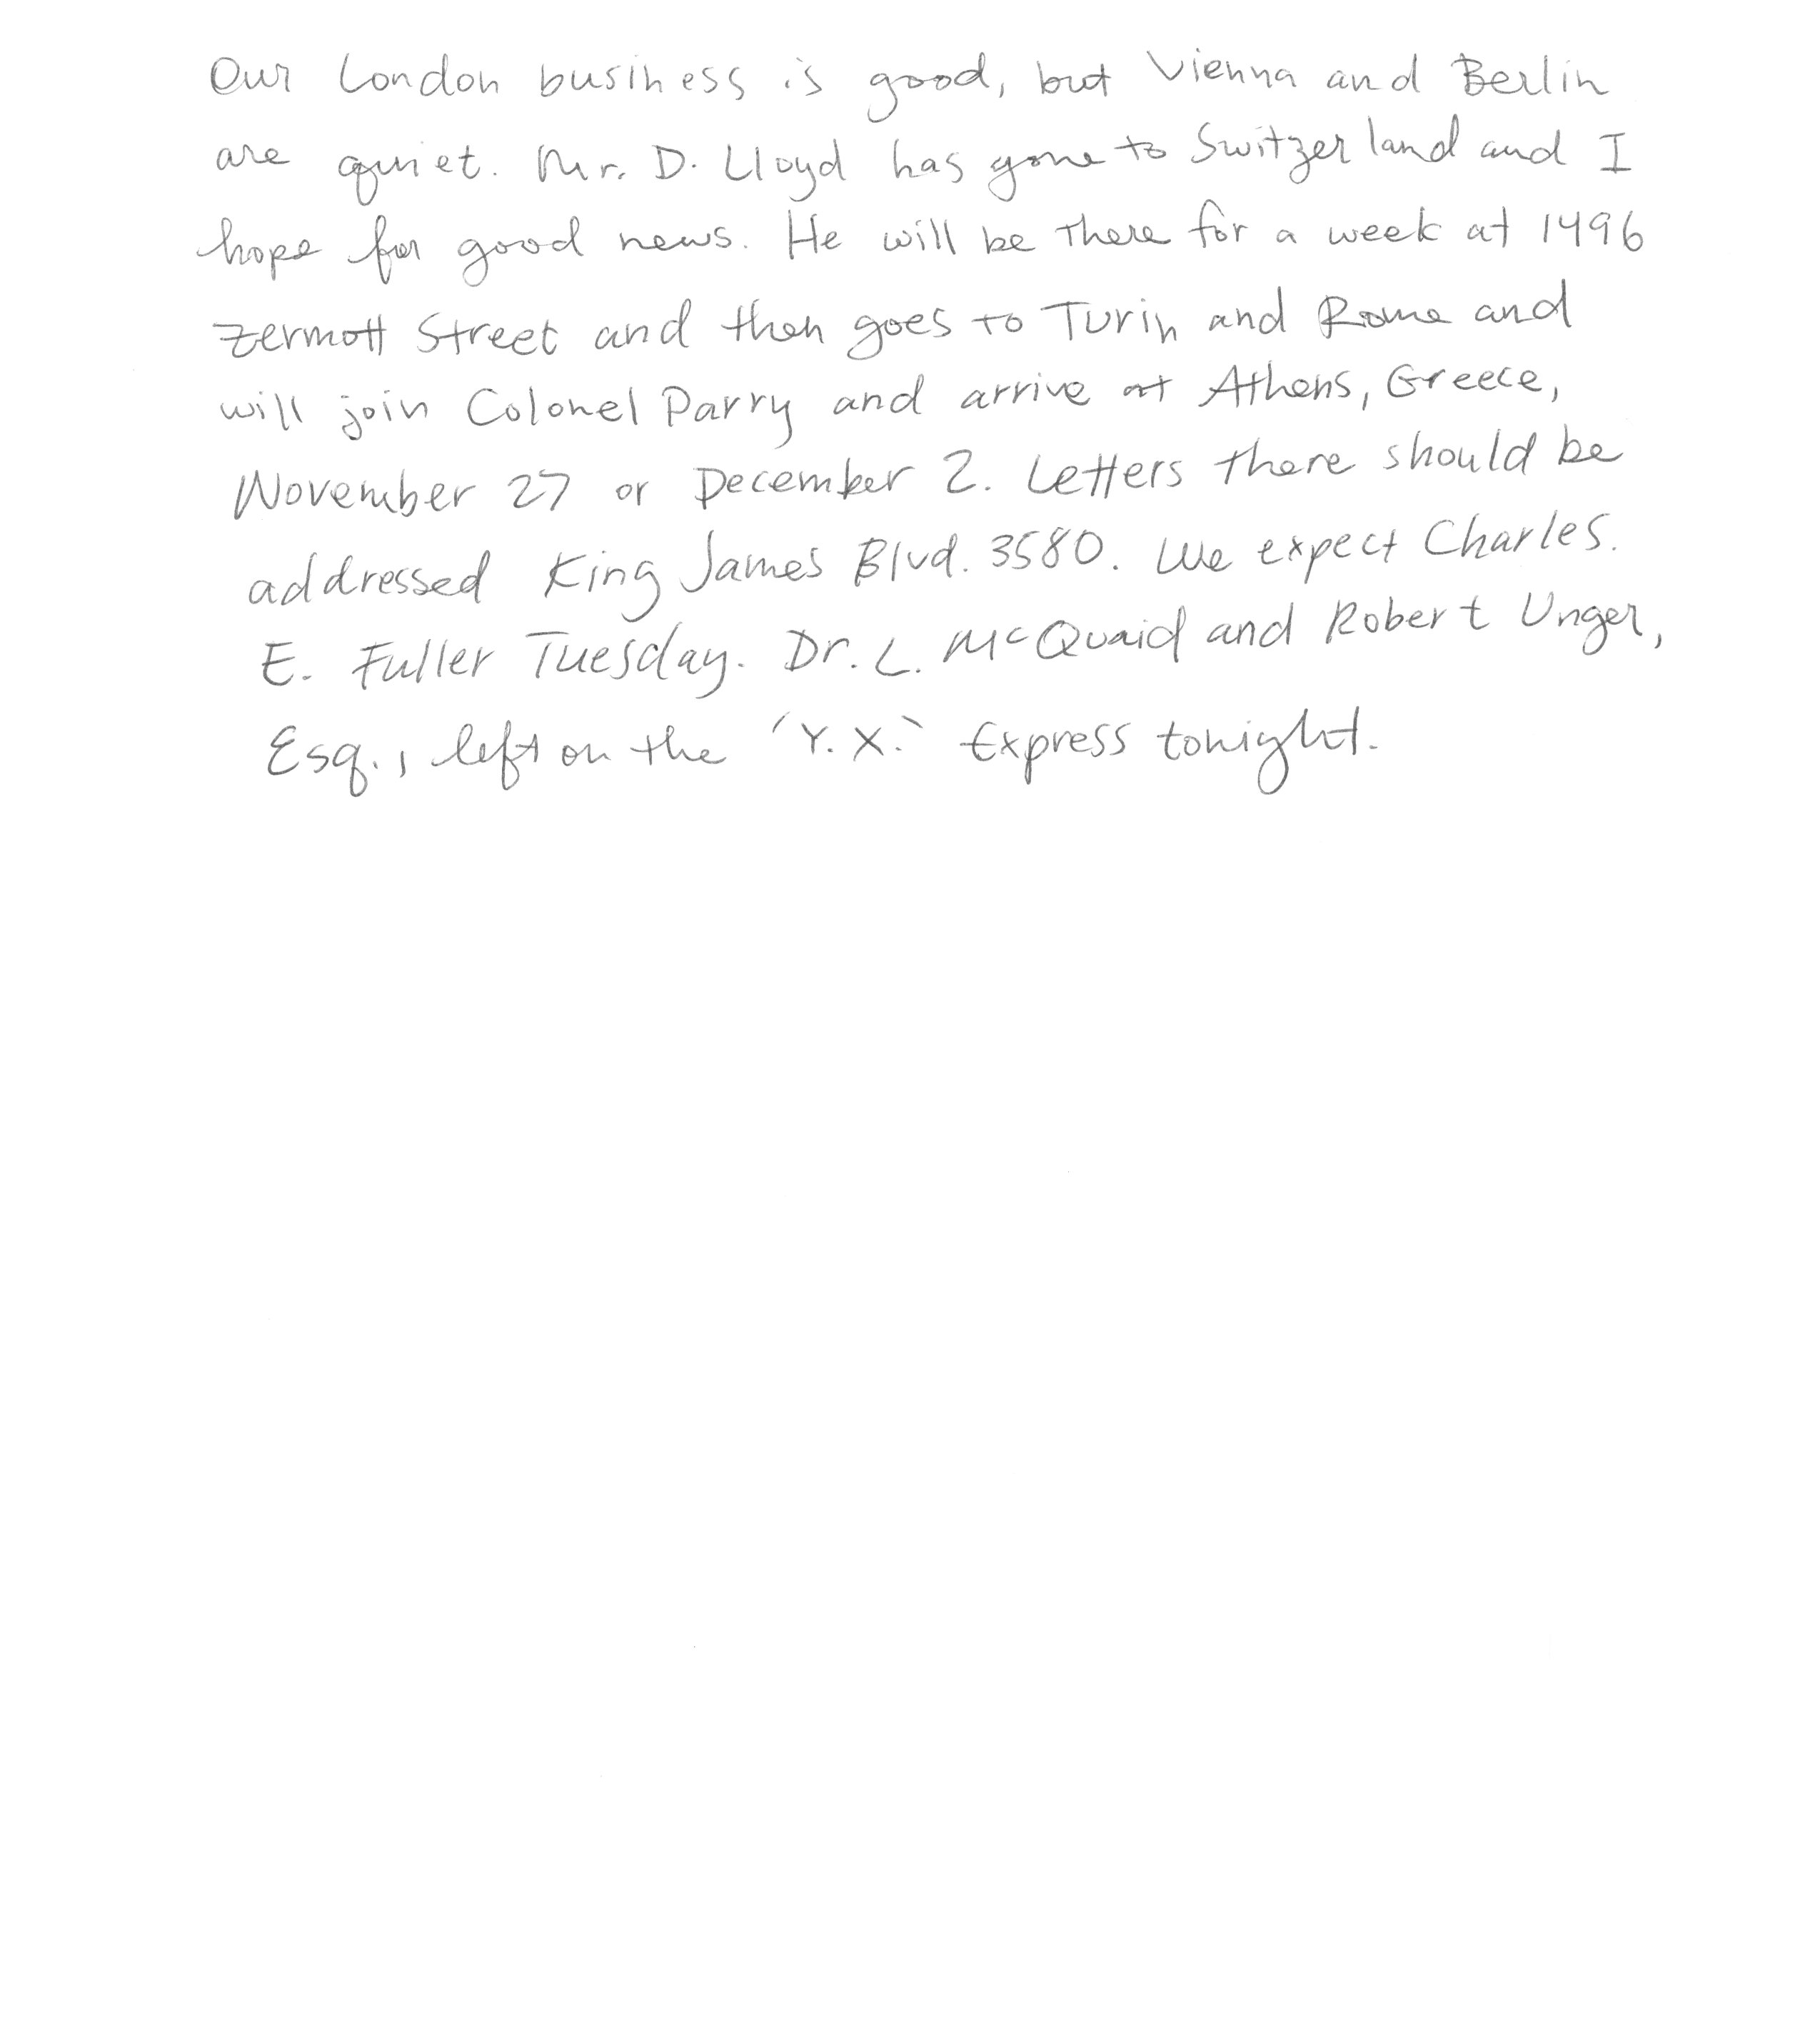 Our London business is good, but Vienna and Berlin
are quiet. Mr. D. Lloyd has gone to Switzerland and I
hope for good news. He will be there for a week at 1496
Zermott Street and then goes to Turin and Rome and
will join Colonel Parry and arrive at Athens, Greece,
November 27 or December 2. Letters there should be
addressed King James Blvd. 3580. We expect Charles.
E. Fuller Tuesday. Dr. L. McQuaid and Robert Unger,
Esq., left on the 'Y.X.' Express tonight.